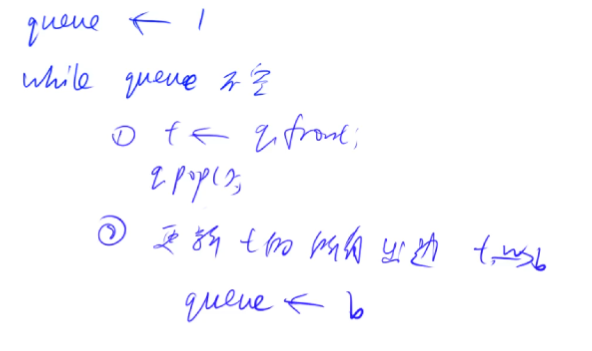 queue ← 1
while queue 不空
① t ← q.front;
q.pop();
② 更新 t的所有出边 t -w> b
queue ← b